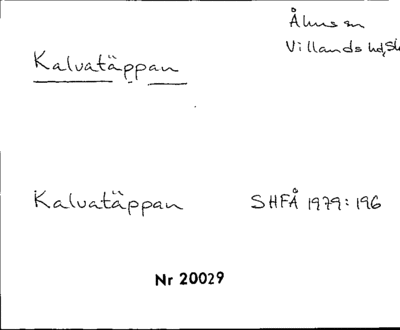 Åhus sn
Villands hd, Sk
Kalvatäppan
Kalvatäppan SHFÅ 1979:196
Nr 20029